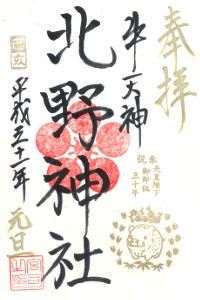 奉拝
牛天神
北野神社
奉祝
天皇陛下
御即位
三十年
己亥
平成三十一年
元旦